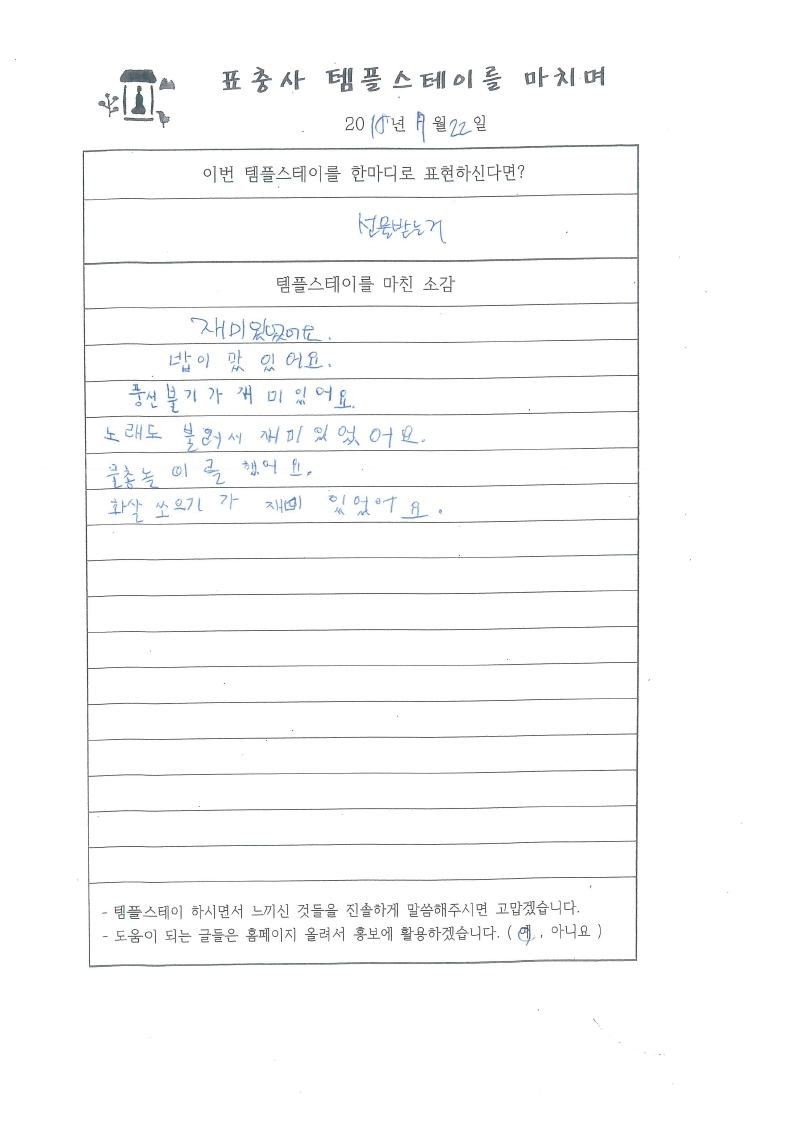 표충사 템플스테이를 마치며
2018년 7월 22일
이번 템플스테이를 한마디로 표현하신다면?
선물받는거
템플스테이를 마친 소감
재미있었어요.
밥이 맜있어요.
풍선불기가 재미있어요.
노래도 불러서 재미있었어요.
물총놀이를 했어요.
화살 쏘으기가 재미있었어요.
- 템플스테이 하시면서 느끼신 것들을 진솔하게 말씀해주시면 고맙겠습니다.
- 도움이 되는 글들은 홈페이지 올려서 홍보에 활용하겠습니다. ( 예 , 아니요 )